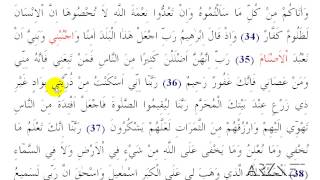 وَاٰتٰاكُمْ مِنْ كُلِّ مَا سَاَلْتُمُوهُ وَاِنْ تَعُدُّوا نِعْمَةَ اللَّهِ لَا تُحْصُوهَا اِنَّ الْاِنْسَانَ
لَظَلُومٌ كَفَّارٌ (34) وَاِذْ قَالَ اِبْرٰهِيمُ رَبِّ اجْعَلْ هٰذَا الْبَلَدَ اٰمِنًا وَاجْنُبْنِي وَبَنِيَّ اَنْ
نَعْبُدَ الْاَصْنَامَ (35) رَبِّ اِنَّهُنَّ اَضْلَلْنَ كَثِيرًا مِنَ النَّاسِ فَمَنْ تَبِعَنِي فَاِنَّهُ مِنِّي
وَمَنْ عَصَانِي فَاِنَّكَ غَفُورٌ رَحِيمٌ (36) رَبَّنَا اِنِّي اَسْكَنْتُ مِنْ ذُرِّيَّتِي بِوَادٍ غَيْرِ
ذِي زَرْعٍ عِنْدَ بَيْتِكَ الْمُحَرَّمِ رَبَّنَا لِيُقِيمُوا الصَّلٰوةَ فَاجْعَلْ اَفْئِدَةً مِنَ النَّاسِ
تَهْوِي اِلَيْهِمْ وَارْزُقْهُمْ مِنَ الثَّمَرَاتِ لَعَلَّهُمْ يَشْكُرُونَ (37) رَبَّنَا اِنَّكَ تَعْلَمُ مَا
نُخْفِي وَمَا نُعْلِنُ وَمَا يَخْفٰى عَلَى اللَّهِ مِنْ شَيْءٍ فِي الْاَرْضِ وَلَا فِي السَّمَاءِ
(38) الَّذِي وَهَبَ لِي عَلَى الْكِبَرِ اِسْمٰعِيلَ وَاِسْحٰقَ اِنَّ رَبِّي